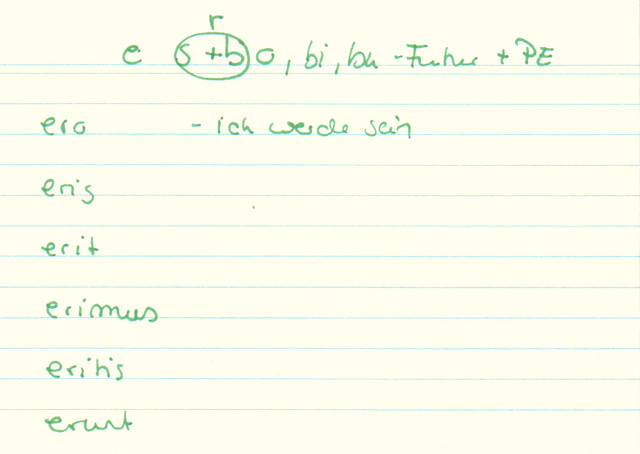 r
e s+b o, bi, bu - Futur + PE
ero - ich werde sein
eris
erit
erimus
eritis
erunt